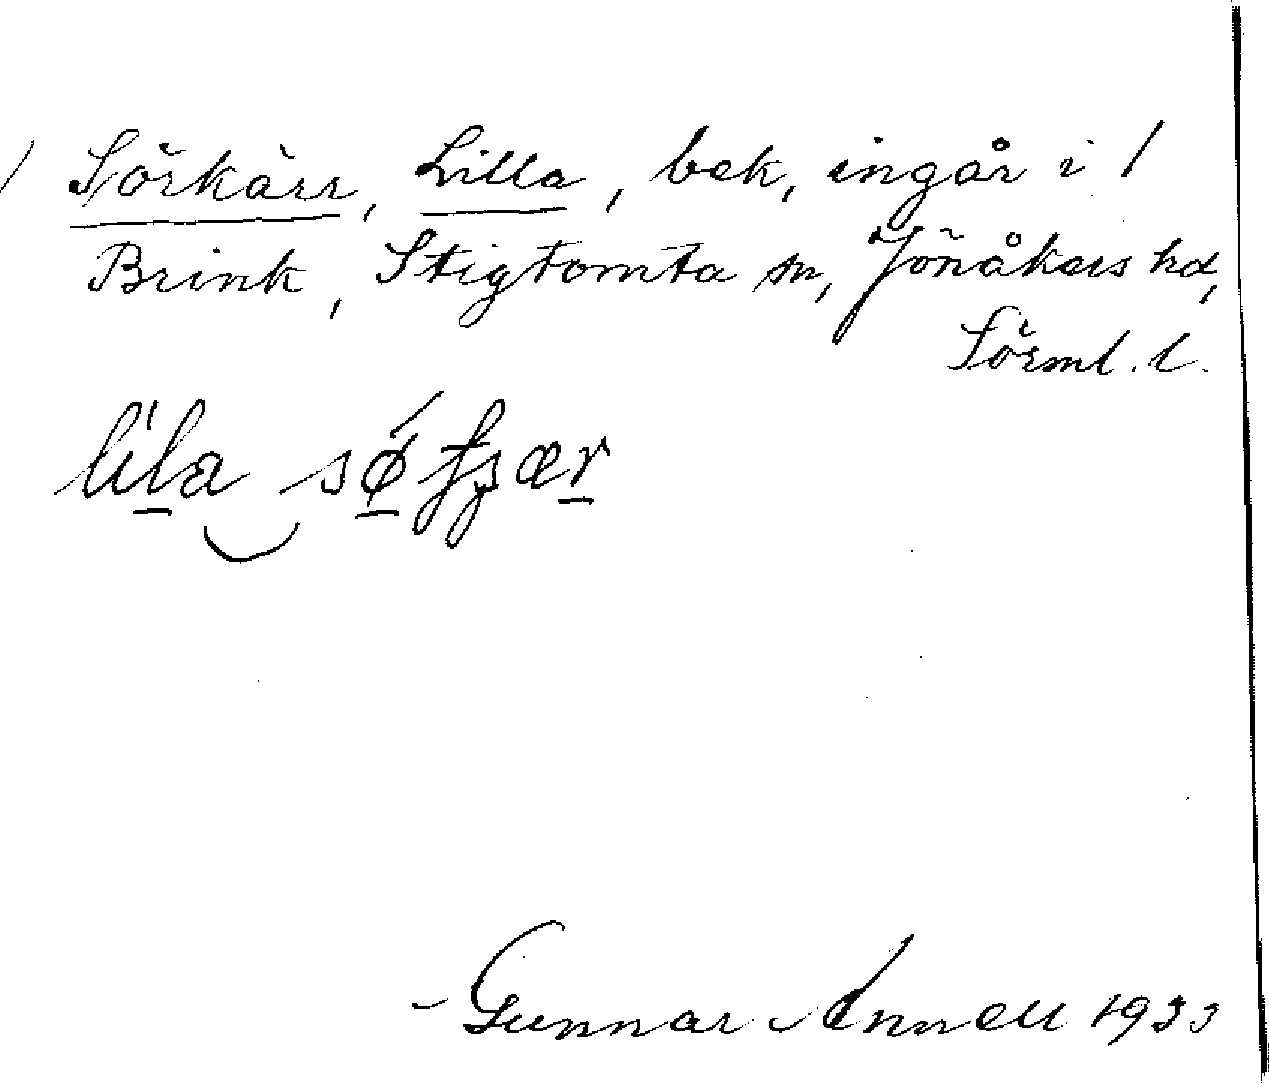 Sörkärr, Lilla, bek, ingår i
Brink, Stigtomta sn, Jönåkers hd,
Sörml. l.
Gunnar Annell 1933